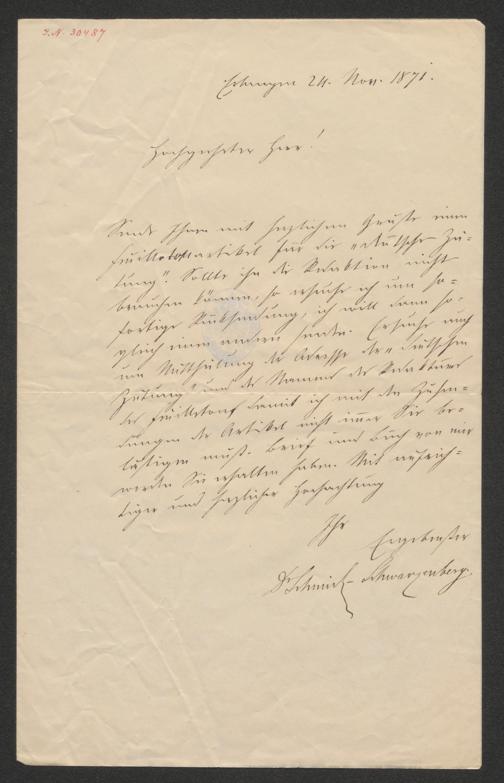 I.N. 30487
Erlangen 24. Nov. 1871.
Hochgeehrter Herr!
Sende Ihnen mit herzlichem Gruße einen
Feuilletonartikel für die „deutsche Zei=
tung". Sollte ihn die Redaktion nicht
brauchen können, so ersuche ich um so=
fortige Rücksendung, ich will dann so=
gleich einen andern senden. Ersuche auch
um Mittheilung der Adresse der „deutschen
Zeitung" und des Namens des Redakteurs
des Feuilletons damit ich mit den Zusen=
dungen der Artikel nicht immer Sie be=
lästigen muß. Brief und Buch von mir
werden Sie erhalten haben. Mit aufrich=
tiger und herzlicher Hochachtung
Ihr
Ergebenster
Dr Schmid-Schwarzenberg.